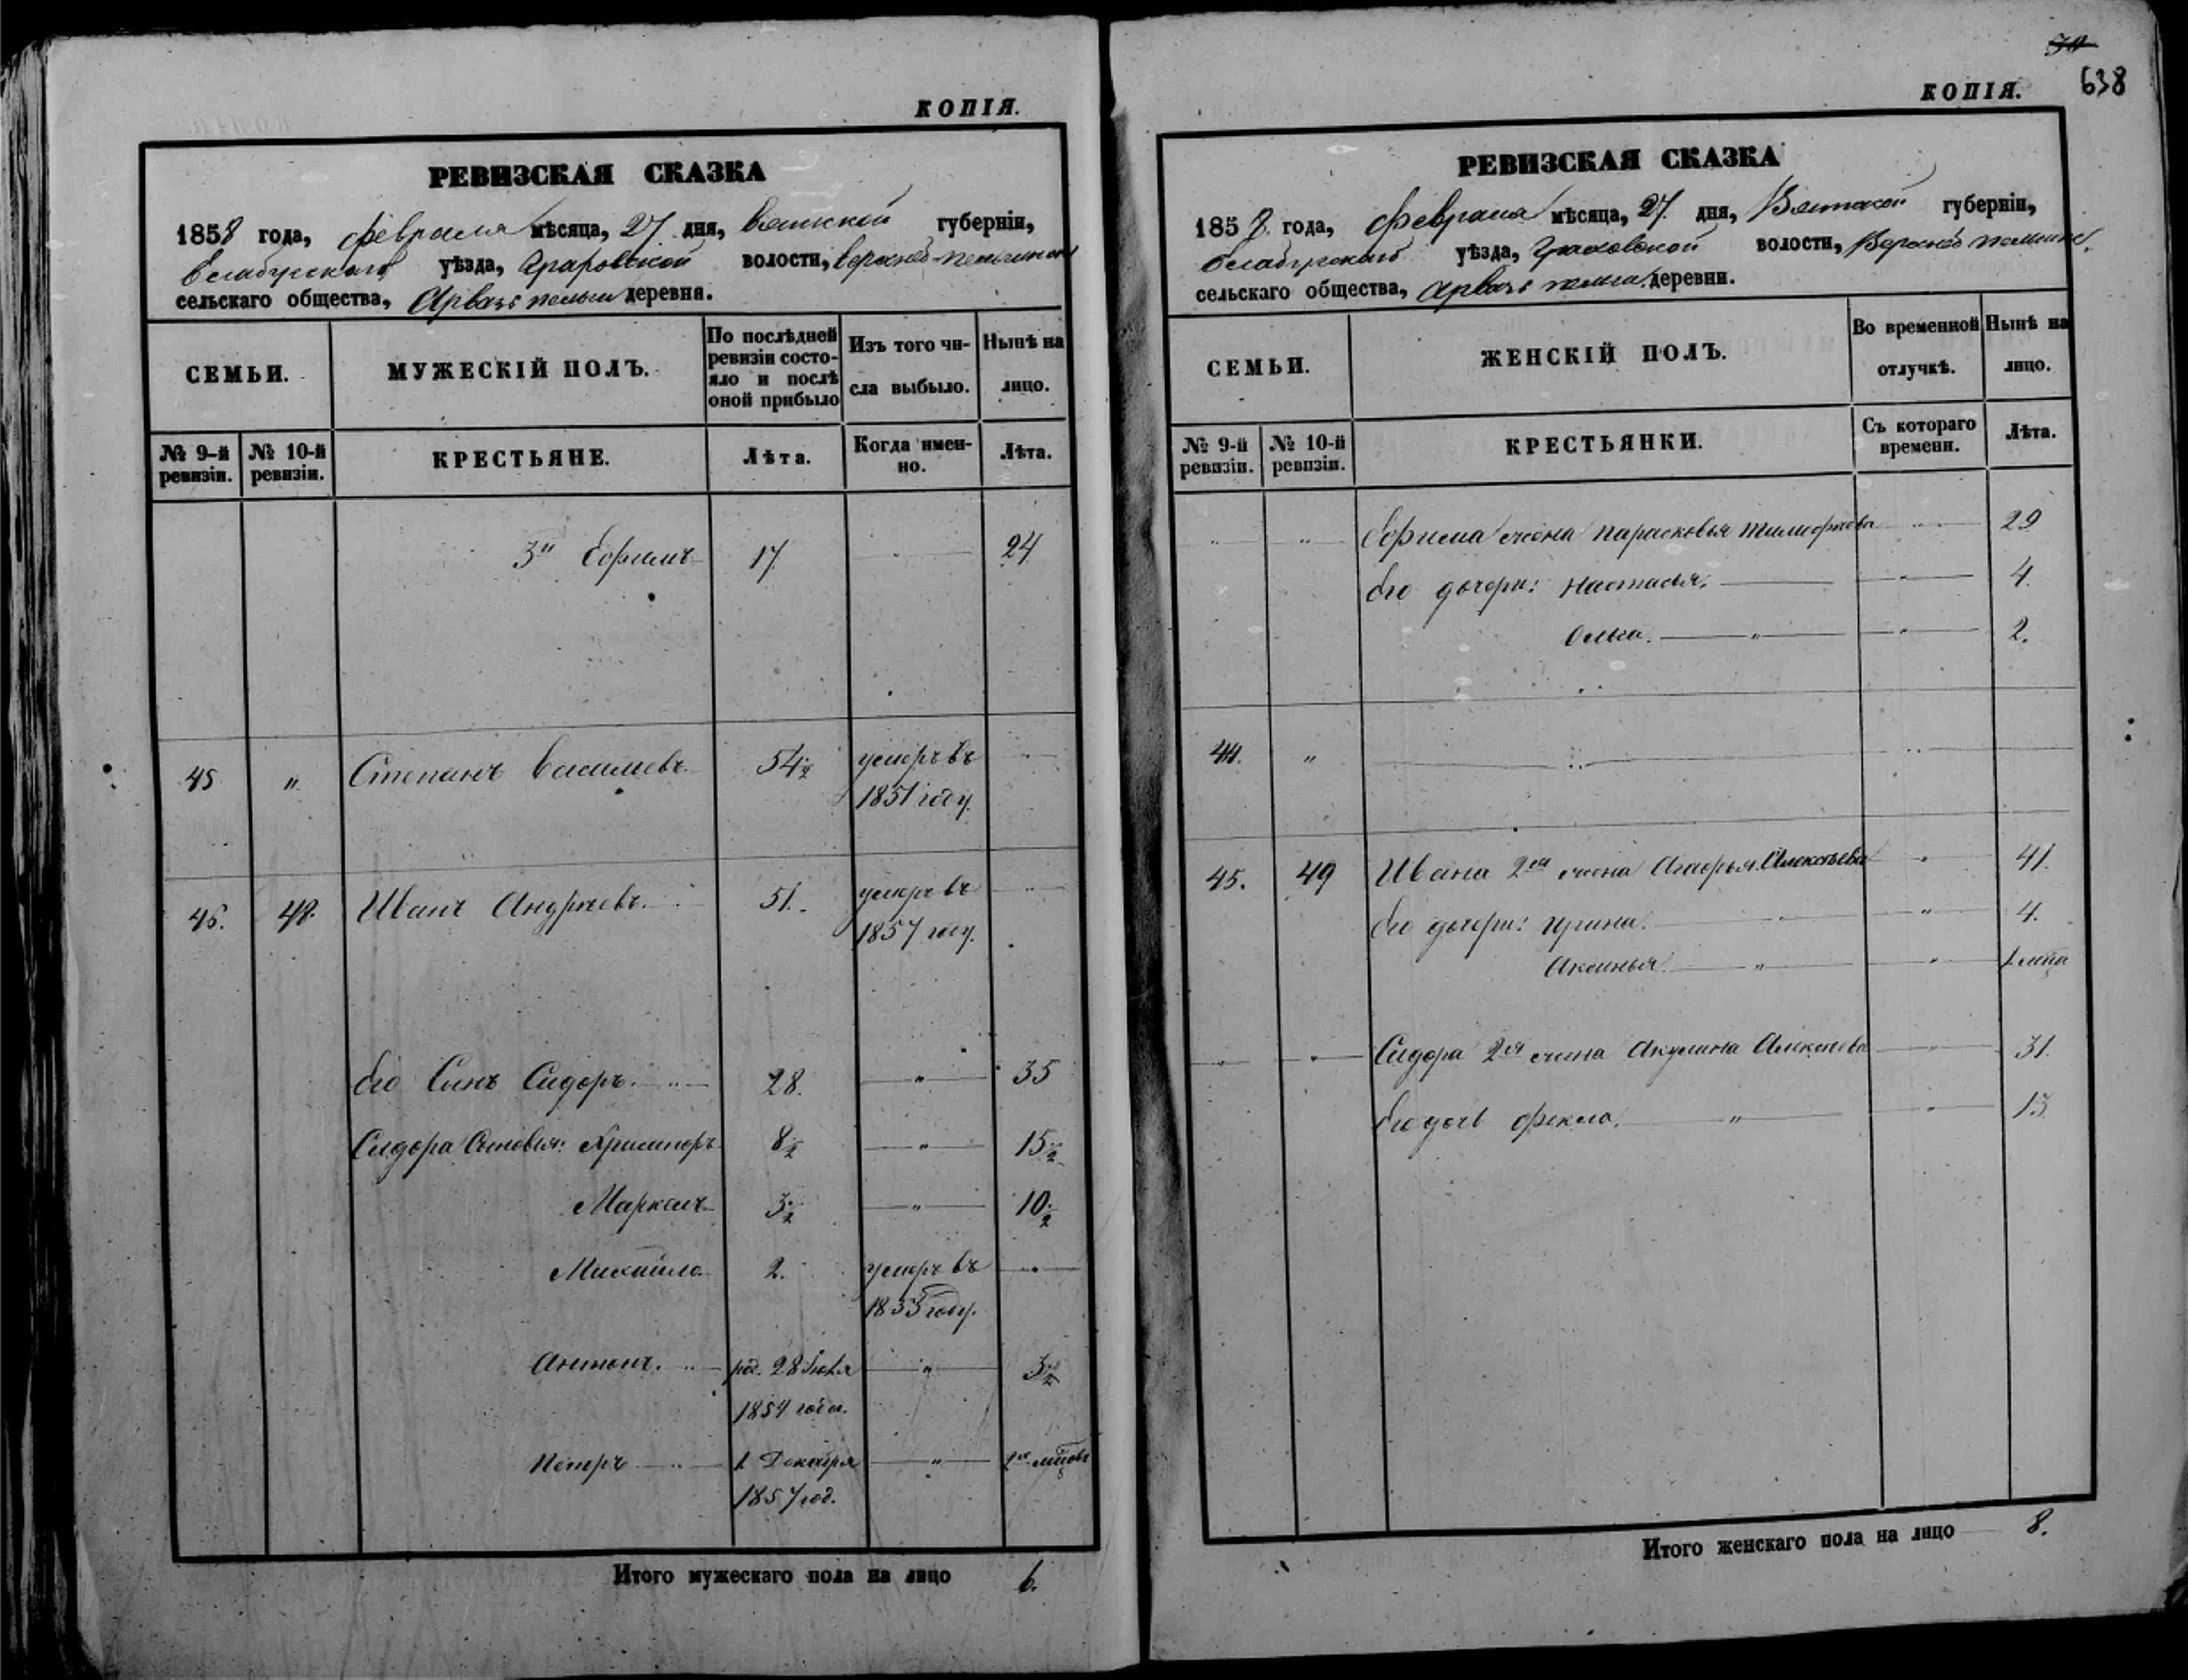 КОПІЯ.
РЕВИЗСКАЯ СКАЗКА
1858 года, февраля мѣсяца, 27 дня, Вятской губерніи,
Елабужскаго уѣзда, Граховской волости,
сельскаго общества, деревня.
СЕМЬИ.
МУЖЕСКІЙ ПОЛЪ.
По послѣдней ревизіи состояло и послѣ оной прибыло
Изъ того числа выбыло.
Нынѣ на лицо.
№ 9-й ревизіи.
№ 10-й ревизіи.
КРЕСТЬЯНЕ.
Лѣта.
Когда именно.
Лѣта.
3й Ефимъ 17 24
45 " Степанъ Васильевъ 54½ умеръ въ
1851 году.
46. 48. Иванъ Андреевъ 51. умеръ въ
1857 году.
Его Сынъ Сидоръ. 28. " 35
Сидора Сыновья: 8½ " 15½
3½ " 10½
Михайло 2. умеръ въ
году.
Антонъ. род. 28 " 3½
1854 года.
Петръ 1 Декабря "
1857 год.
Итого мужескаго пола на лицо 6.
638
КОПІЯ.
РЕВИЗСКАЯ СКАЗКА
1858 года, февраля мѣсяца, 27. дня, Вятской губерніи,
Елабужскаго уѣзда, Граховской волости,
сельскаго общества, деревни.
СЕМЬИ.
ЖЕНСКІЙ ПОЛЪ.
Во временной отлучкѣ.
Нынѣ на лицо.
№ 9-й ревизіи.
№ 10-й ревизіи.
КРЕСТЬЯНКИ.
Съ котораго времени.
Лѣта.
" " Ефима жена Парасковья 29
Его дочери: Настасья. " 4.
Ольга. " " 2.
44. "
45. 49 Ивана 2ая жена Агафья Алексѣева " 41.
Его дочери: Ирина. " 4.
Аксинья. " "
Сидора 2ая жена Акулина Алексѣева " 31.
Его дочь Фекла. " " 13.
Итого женскаго пола на лицо 8.